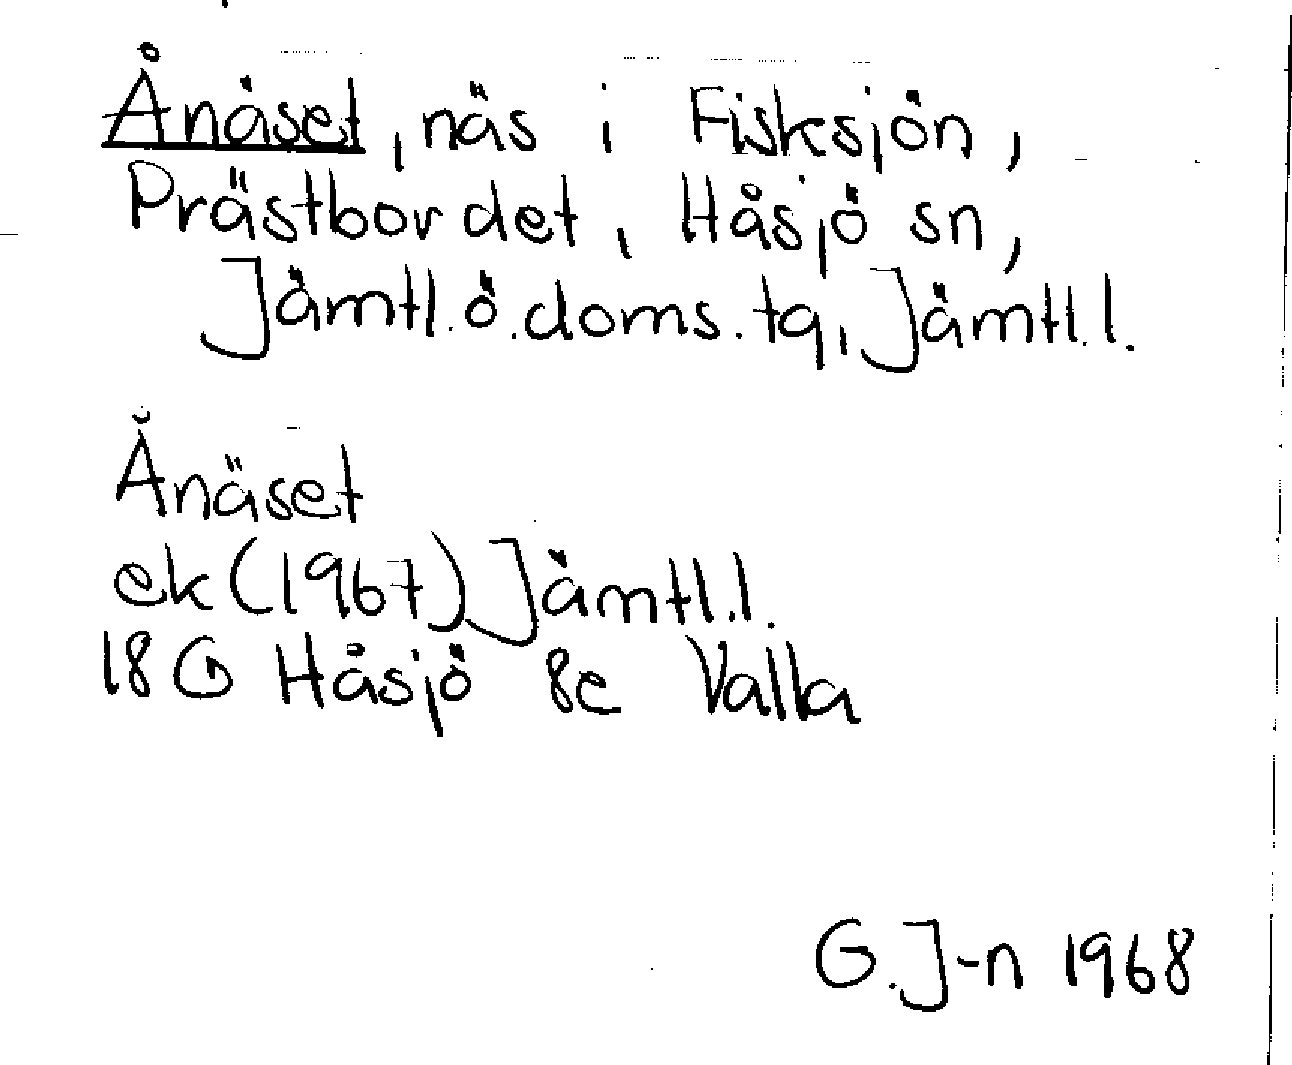 Ånäset, näs i Fisksjön,
Prästbordet, Håsjö sn,
Jämtl.ö.doms.tg, Jämtl.l.
Ånäset
ek (1967) Jämtl.l.
18 G Håsjö 8e Valla
G.J-n 1968